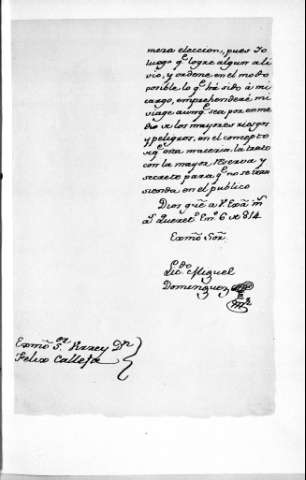 mera eleccion, pues Yo
luego q.e logre algun ali
vio, y ordene en el modo
posible lo q.e há sido á mi
cargo, emprehenderé mi
viage aunq.e sea por enme
dio de los mayores riesgos
y peligros, en el concepto
de q.e esta materia la trato
con la mayor reserva y
secreto para q.e no se tras
cienda en el publico
Dios gue. á V. Exâ. m.s
a.s Queret.o En.o 6 de 814.
Exmô Sor.
Lic.do Miguel
Dominguez
Exmô S.or Virrey D.n
Felix Calleja